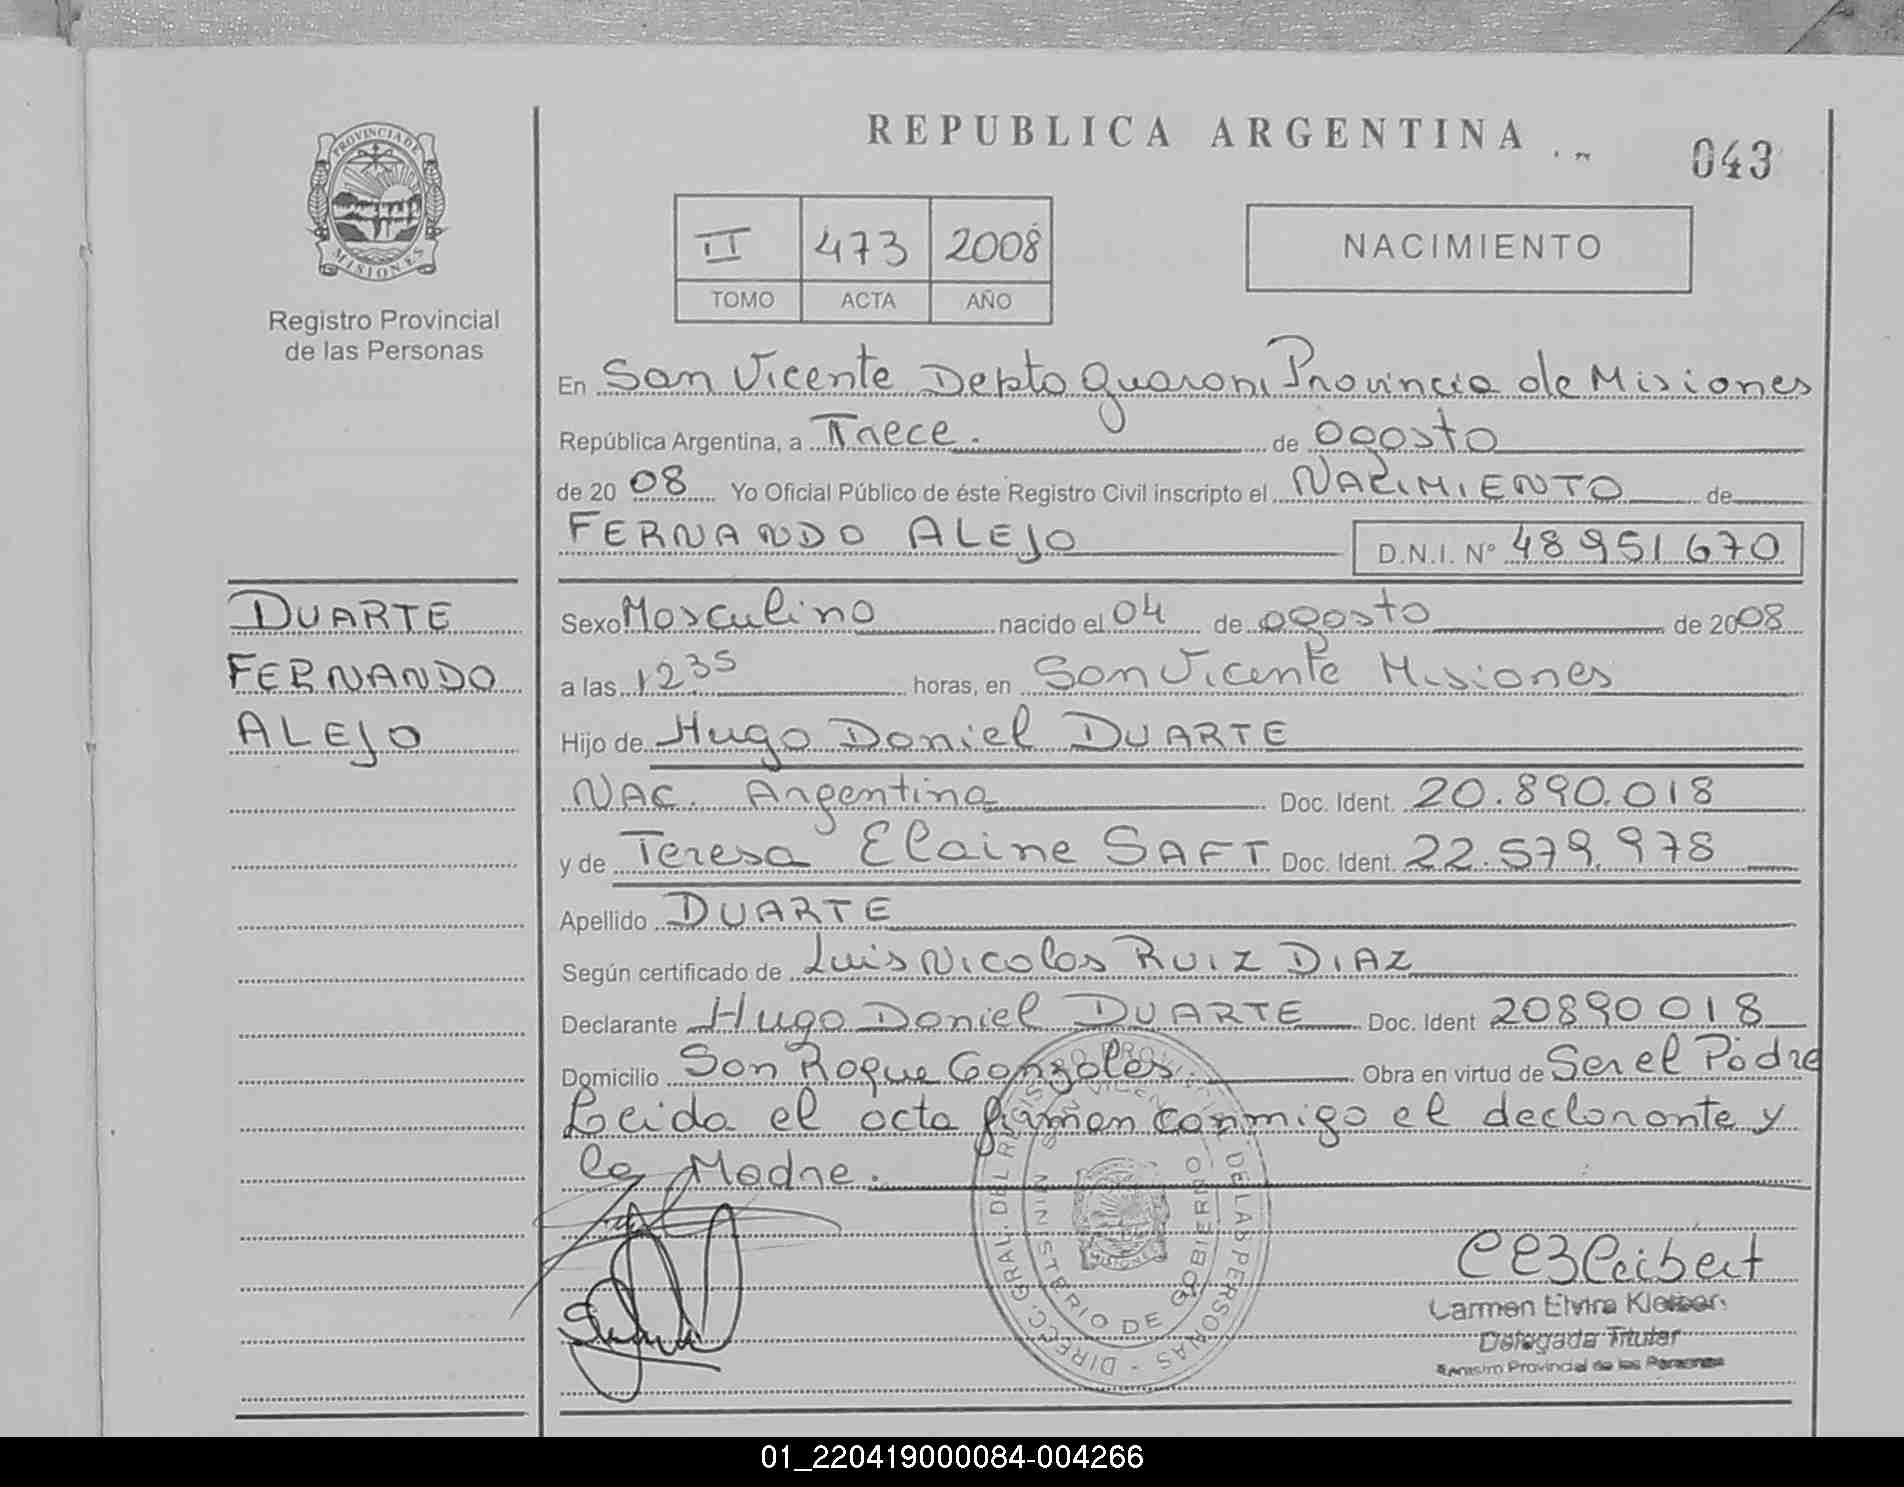 REPUBLICA ARGENTINA
043
PROVINCIA DE
MISIONES
Registro Provincial
de las Personas
II 473 2008
TOMO ACTA AÑO
NACIMIENTO
En San Vicente Depto Guarani Provincia de Misiones
República Argentina, a Trece. de agosto
de 20 08 Yo Oficial Público de éste Registro Civil inscripto el NACIMIENTO de
FERNANDO ALEJO D.N.I. N° 48951670
DUARTE
FERNANDO
ALEJO
Sexo Masculino nacido el 04 de agosto de 2008
a las 1235 horas, en San Vicente Misiones
Hijo de Hugo Daniel DUARTE
NAC. Argentina Doc. Ident. 20.890.018
y de Teresa Elaine SAFT Doc. Ident. 22.579.978
Apellido DUARTE
Según certificado de Luis Nicolas RUIZ DIAZ
Declarante Hugo Daniel DUARTE Doc. Ident 20890018
Domicilio San Roque Gonzales. Obra en virtud de Ser el Padre
Leida el acta firman conmigo el declarante y
la Madre.
DIRECC. GRAL. DEL REGISTRO PROVINCIAL DE LAS PERSONAS
SAN VICENTE
MINISTERIO DE GOBIERNO
MISIONES
Carmen Elvira
Delegada Titular
Registro Provincial de las Personas
01_220419000084-004266